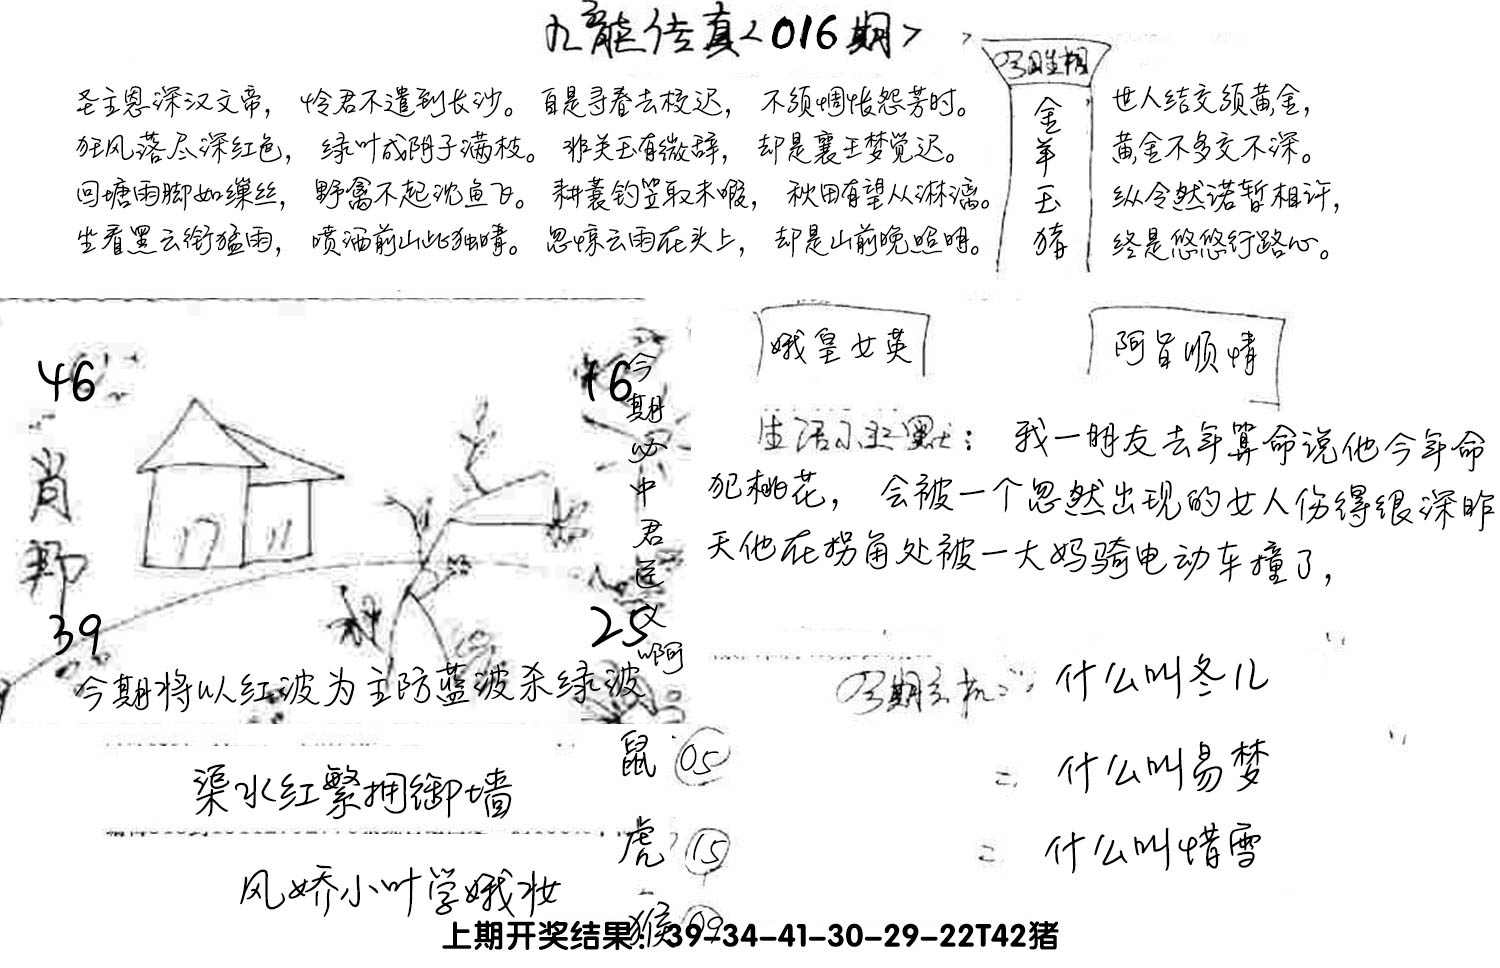 九龙传真<016期>
圣主恩深汉文帝，怜君不遣到长沙。自是寻春去校迟，不须惆怅怨芳时。
狂风落尽深红色，绿叶成阴子满枝。非关玉有微辞，却是襄王梦觉迟。
回塘雨脚如缫丝，野禽不起沈鱼飞。耕蓑钓笠取未暇，秋田有望从淋漓。
坐看黑云衔猛雨，喷洒前山此独晴。忽惊云雨在头上，却是山前晚照明。
今期生相
金羊玉猪
世人结交须黄金，
黄金不多交不深。
纵令然诺暂相许，
终是悠悠行路心。
46
16
肖
39
25
今期必中君送义啊
今期将以红波为主防蓝波杀绿波
娥皇女英
阿旨顺情
生活小幽默：我一朋友去年算命说他今年命
犯桃花，会被一个忽然出现的女人伤得很深昨
天他在拐角处被一大妈骑电动车撞了，
今期玄机：什么叫冬儿
二 什么叫易梦
二 什么叫惜雪
渠水红繁拥御墙
风娇小叶学娥妆
鼠 05
虎 15
猴 09
上期开奖结果：39-34-41-30-29-22T42猪